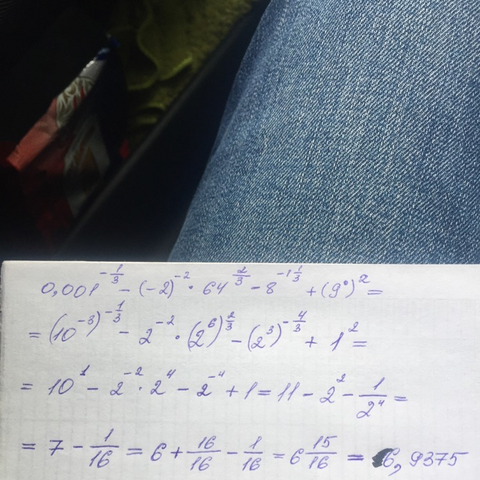 0,001^{-\frac{1}{3}} - (-2)^{-2} · 64^{\frac{2}{3}} - 8^{-1\frac{1}{3}} + (9^0)^2 =
= (10^{-3})^{-\frac{1}{3}} - 2^{-2} · (2^6)^{\frac{2}{3}} - (2^3)^{-\frac{4}{3}} + 1^2 =
= 10^1 - 2^{-2} · 2^4 - 2^{-4} + 1 = 11 - 2^2 - \frac{1}{2^4} =
= 7 - \frac{1}{16} = 6 + \frac{16}{16} - \frac{1}{16} = 6\frac{15}{16} = 6,9375